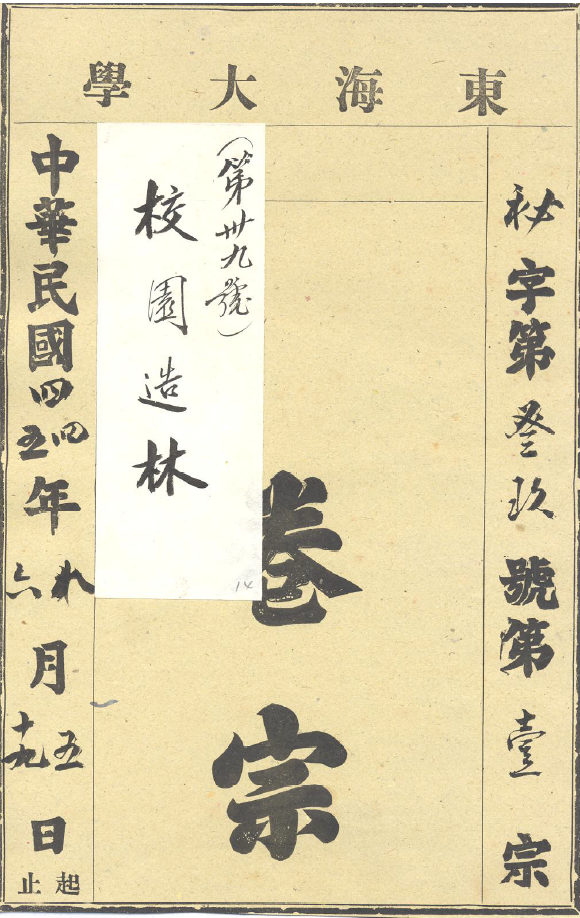 東海大學
秘字第叁玖號第壹宗
(第卅九號)
校園造林
卷宗
中華民國四
四五年
九六月
五十九日
起止
14